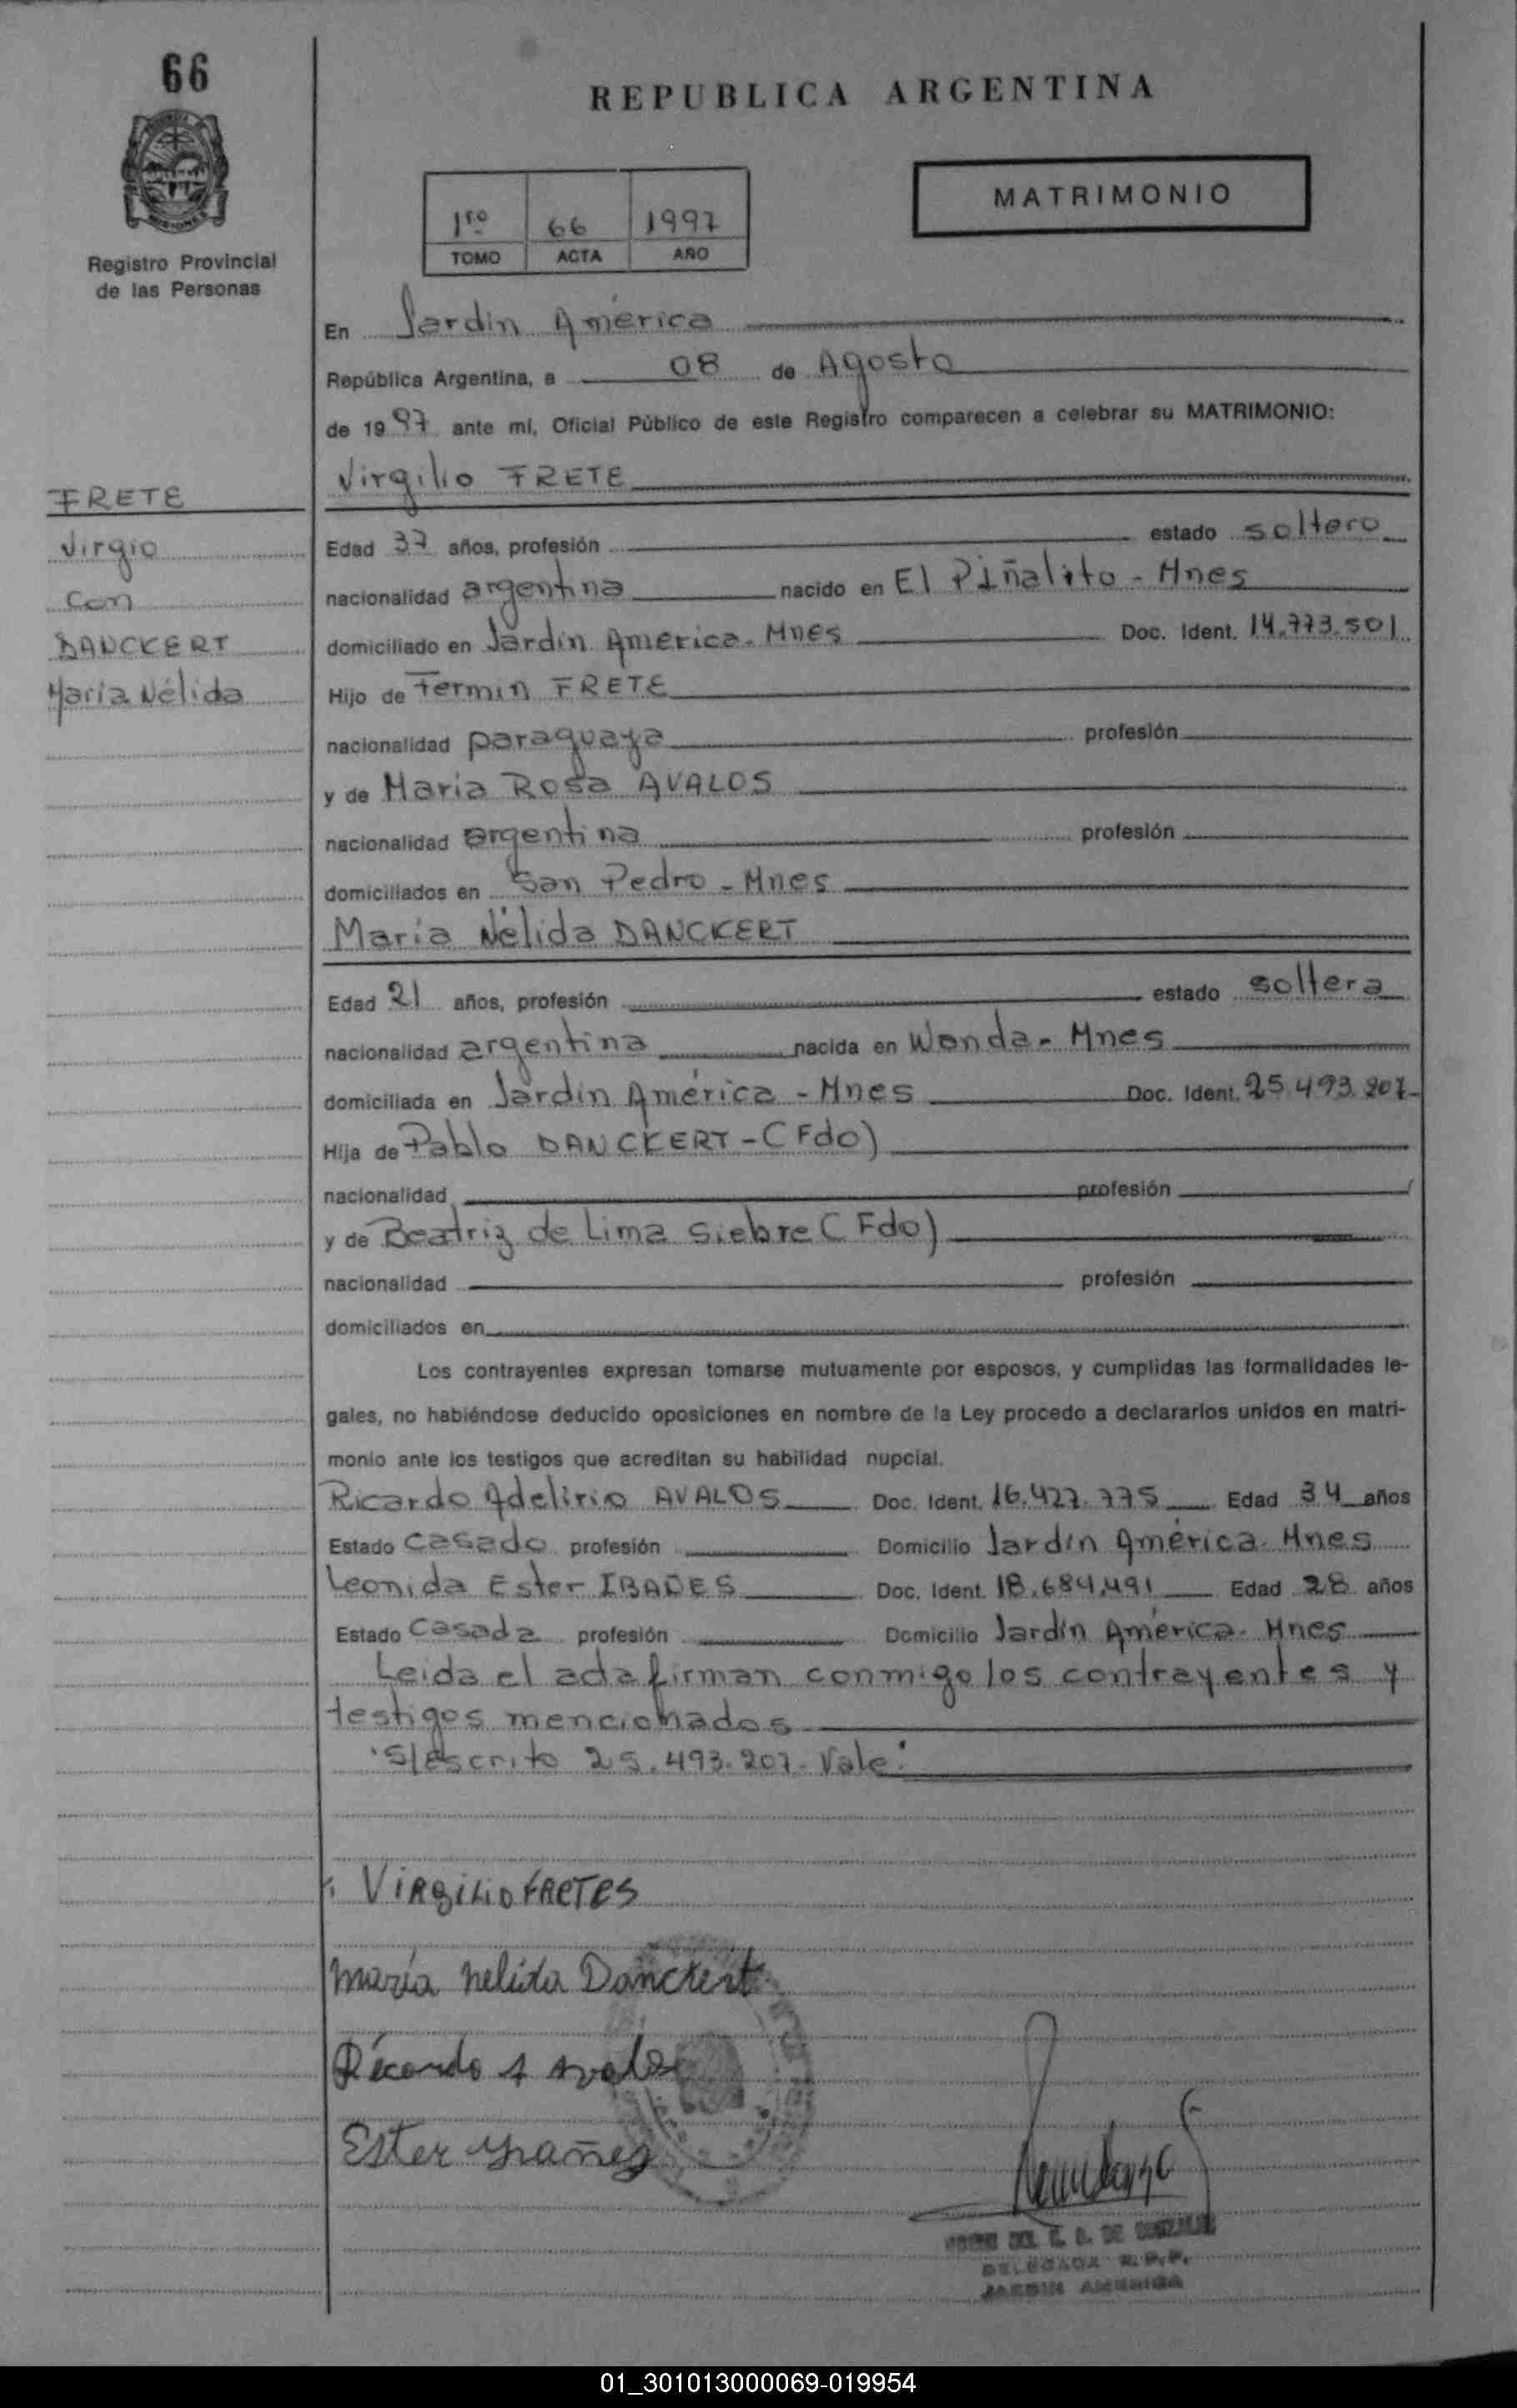 66
REPUBLICA ARGENTINA
MATRIMONIO
1ro 66 1997
TOMO ACTA AÑO
Registro Provincial
de las Personas
En Jardín América
República Argentina, a 08 de Agosto
de 1997 ante mí, Oficial Público de este Registro comparecen a celebrar su MATRIMONIO:
Virgilio FRETE
FRETE
Virgio
con
DANCKERT
María Nélida
Edad 37 años, profesión estado soltero
nacionalidad argentina nacido en El Piñalito - Mnes
domiciliado en Jardín América. Mnes Doc. Ident. 14.773.501
Hijo de Fermin FRETE
nacionalidad paraguaya profesión
y de María Rosa AVALOS
nacionalidad argentina profesión
domiciliados en San Pedro - Mnes
María Nélida DANCKERT
Edad 21 años, profesión estado soltera
nacionalidad argentina nacida en Wanda - Mnes
domiciliada en Jardín América - Mnes Doc. Ident. 25.493.207-
Hija de Pablo DANCKERT - (Fdo)
nacionalidad profesión
y de Beatriz de Lima Siebre (Fdo)
nacionalidad profesión
domiciliados en
Los contrayentes expresan tomarse mutuamente por esposos, y cumplidas las formalidades le-
gales, no habiéndose deducido oposiciones en nombre de la Ley procedo a declararlos unidos en matri-
monio ante los testigos que acreditan su habilidad nupcial.
Ricardo Adelirio AVALOS Doc. Ident. 16.427.775 Edad 34 años
Estado casado profesión Domicilio Jardín América. Mnes
Leonida Ester IBAÑES Doc. Ident. 18.684.491 Edad 28 años
Estado casada profesión Domicilio Jardín América. Mnes
Leida el acta firman conmigo los contrayentes y
testigos mencionados
S/escrito 25.493.207. Vale.
VIRGILIO FRETES
María Nelida Danckert
Ricardo A Avalo
Ester Ybañez
DELEGADA R.P.P.
JARDIN AMERICA
01_301013000069-019954